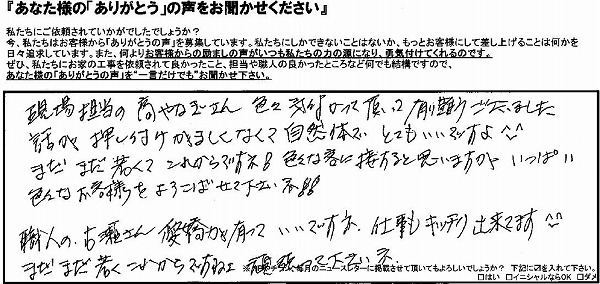 『あなた様の「ありがとう」の声をお聞かせください』
私たちにご依頼されていかがでしたでしょうか?
今、私たちはお客様から「ありがとうの声」を募集しています。私たちにしかできないことはないか、もっとお客様にして差し上げることは何かを
日々追求しています。また、何よりお客様からの励ましの声がいつも私たちの力の源になり、勇気付けてくれるのです。
ぜひ、私たちにお家の工事を依頼されて良かったこと、担当や職人の良かったところなど何でも結構ですので、
あなた様の「ありがとうの声」を"一言だけでも"お聞かせ下さい。
現場担当の 高やなぎさん 色々 気をつかって頂いて 有り難うございました
話方が 押し付けがましくなくて 自然体で とてもいいですよ^^
まだまだ若くて これからですネ! 色々な客に接すると思いますが いっぱい
色々なお客様をよろこばせて下さいネ!!
職人の、古瀬さん 愛嬌が有って いいですネ、仕事も キッチリ出来てます^^
まだまだ若く これからですねェ 頑張って下さいネ
毎月のニュースレターに掲載させて頂いてもよろしいでしょうか? 下記に☑を入れて下さい。
□はい □イニシャルならOK □ダメ